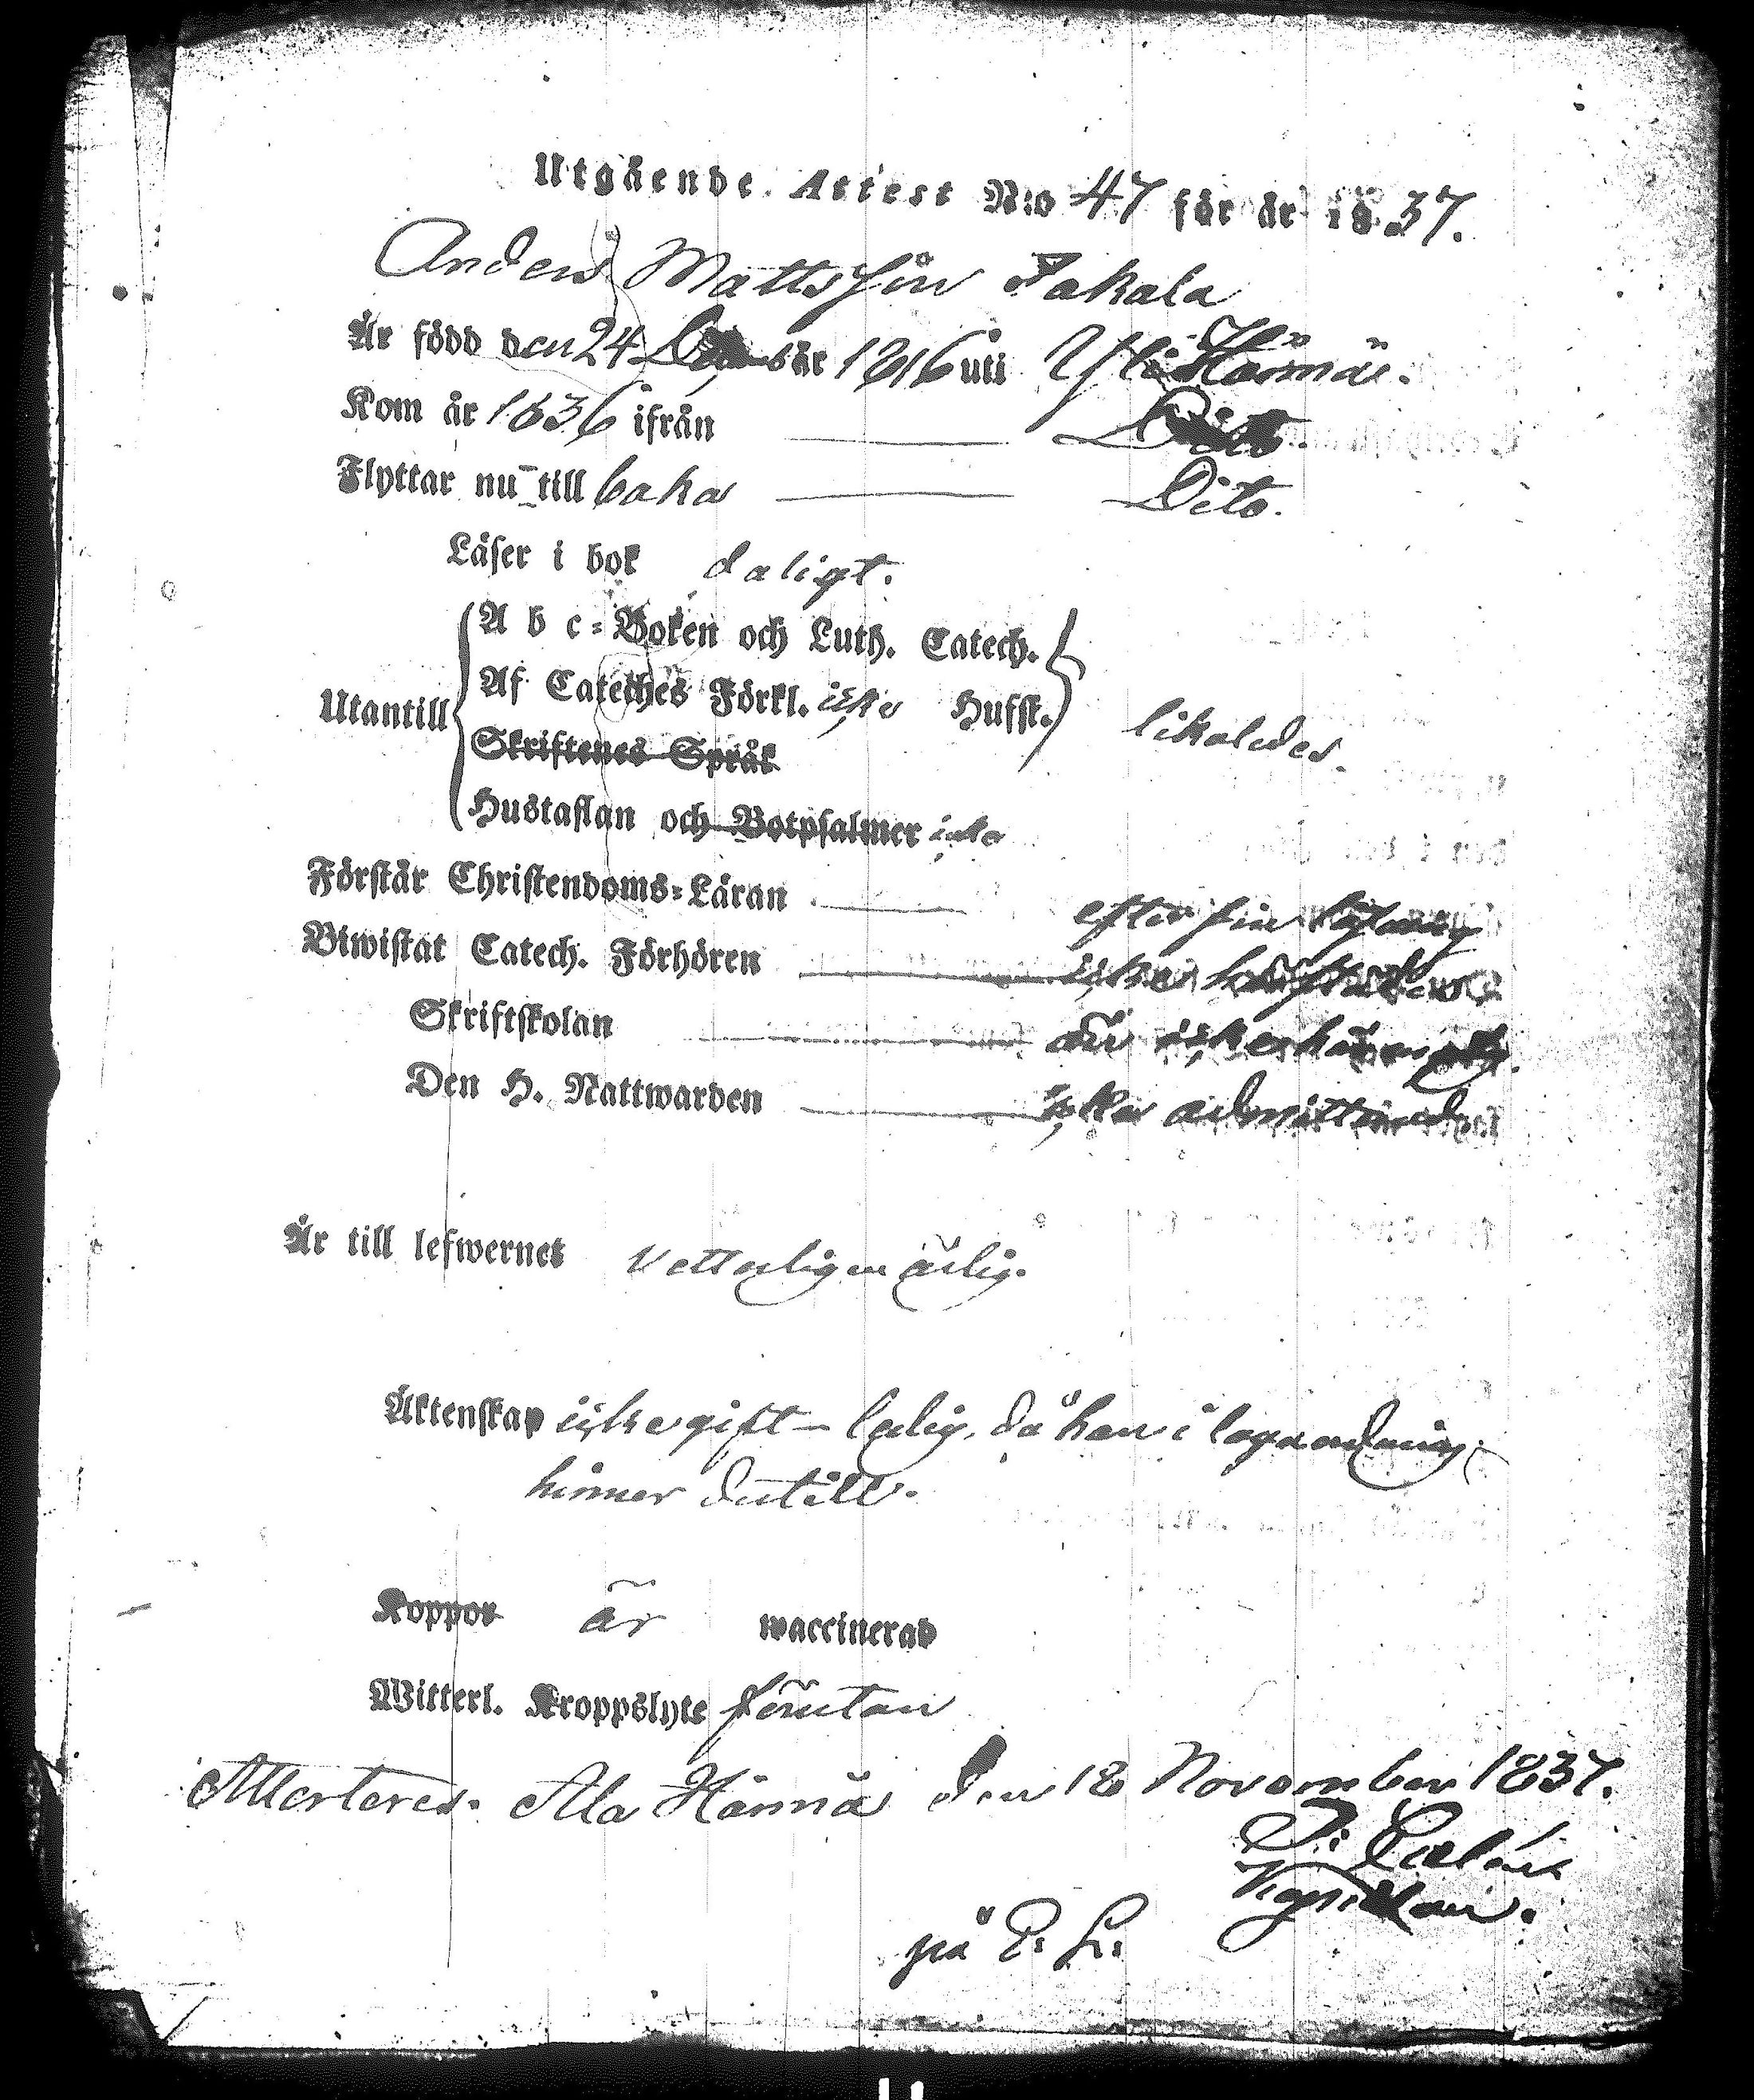 Utgående Attest N:o 47 för år 1837.
Anders Mattsson Jakala
Är född den 24 år 1816 uti Yli Härmä.
Kom år 1836 ifrån Dito
Flyttar nu till baka Dito.
Läser i bok daligt.
A b c-Boken och Luth. Catech.
Af Cateches Förkl. icke Hufsk.
Utantill likaledes.
Skriftenes Språk
Hustaflan och Botpsalmer icke
Förstår Christendoms-Läran efter sin läsning
Biwistat Catech. Förhören icke
Skriftskolan är icke
Den H. Nattwarden icke admitterad
Är till lefwernet Vetterligen ärlig.
Äktenskap icke gift – ledig, då han i laga ordning
hinner dertill.
Koppor är waccinerad
Witterl. Kroppslyte förutan
Attesteras. Ala Härmä den 18 November 1837.
på P: L: